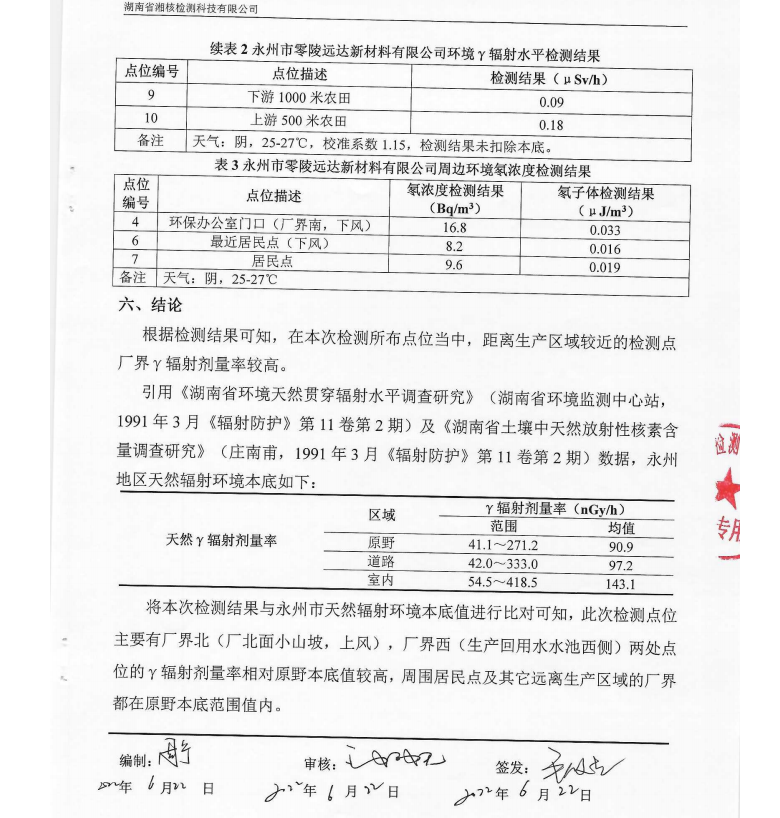 湖南省湘核检测科技有限公司
续表 2 永州市零陵远达新材料有限公司环境 γ 辐射水平检测结果
点位编号 点位描述 检测结果（μSv/h）
9 下游 1000 米农田 0.09
10 上游 500 米农田 0.18
备注 天气：阴，25-27℃，校准系数 1.15，检测结果未扣除本底。
表 3 永州市零陵远达新材料有限公司周边环境氡浓度检测结果
点位编号 点位描述 氡浓度检测结果（Bq/m³） 氡子体检测结果（μJ/m³）
4 环保办公室门口（厂界南，下风） 16.8 0.033
6 最近居民点（下风） 8.2 0.016
7 居民点 9.6 0.019
备注 天气：阴，25-27℃
六、结论
根据检测结果可知，在本次检测所布点位当中，距离生产区域较近的检测点
厂界 γ 辐射剂量率较高。
引用《湖南省环境天然贯穿辐射水平调查研究》（湖南省环境监测中心站，
1991 年 3 月《辐射防护》第 11 卷第 2 期）及《湖南省土壤中天然放射性核素含
量调查研究》（庄南甫，1991 年 3 月《辐射防护》第 11 卷第 2 期）数据，永州
地区天然辐射环境本底如下：
天然 γ 辐射剂量率 区域 γ 辐射剂量率（nGy/h）
范围 均值
原野 41.1～271.2 90.9
道路 42.0～333.0 97.2
室内 54.5～418.5 143.1
将本次检测结果与永州市天然辐射环境本底值进行比对可知，此次检测点位
主要有厂界北（厂北面小山坡，上风），厂界西（生产回用水水池西侧）两处点
位的 γ 辐射剂量率相对原野本底值较高，周围居民点及其它远离生产区域的厂界
都在原野本底范围值内。
编制： 审核： 签发：
2022年 6 月22 日 2022年 6 月 22 日 2022年 6 月 22日
检测
专用